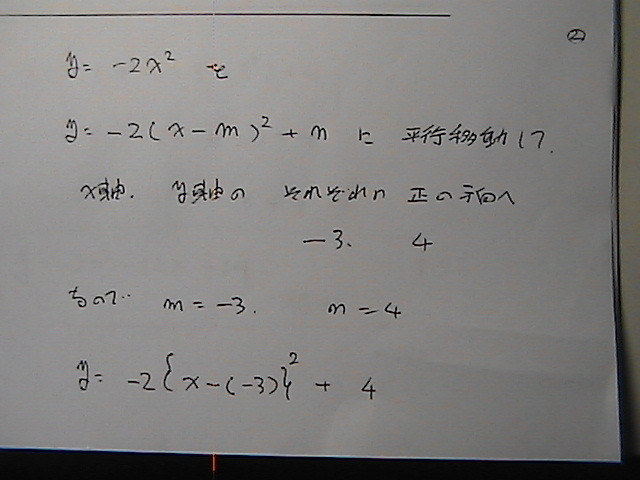 ②
y = -2x² を
y = -2(x-m)² + n に 平行移動して、
x軸、y軸の それぞれの 正の方向へ
-3、 4
なので… m = -3、 n = 4
y = -2{x-(-3)}² + 4